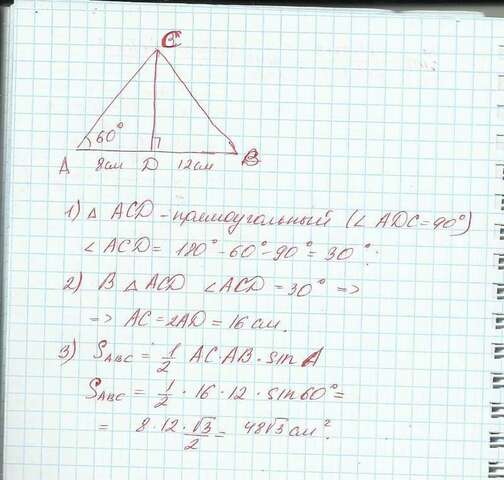 C
60°
A 8см D 12см B
1) △ ACD - прямоугольный (∠ ADC = 90°)
∠ ACD = 180° - 60° - 90° = 30°.
2) В △ ACD ∠ ACD = 30° =>
=> AC = 2AD = 16 см.
3) S_ABC = 1/2 AC · AB · sin A
S_ABC = 1/2 · 16 · 12 · sin 60° =
= 8 · 12 · √3/2 = 48√3 см².